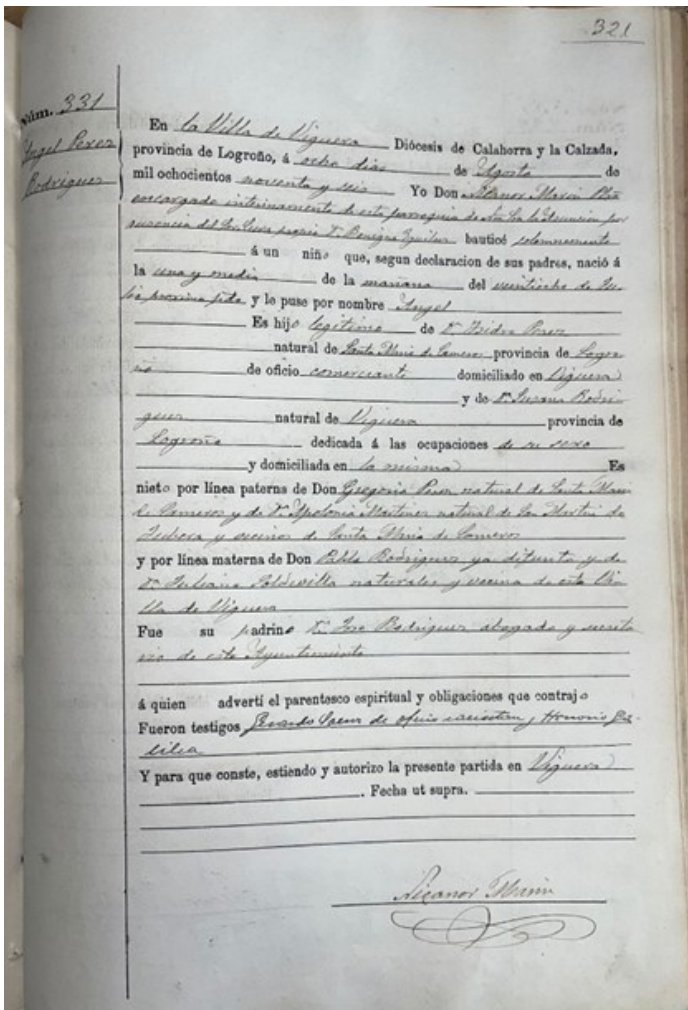 321
Núm. 331
Angel Perez
Rodriguez
En la Villa de Viguera Diócesis de Calahorra y la Calzada,
provincia de Logroño, á ocho dias de Agosto de
mil ochocientos noventa y seis Yo Don Nicanor Marin Pbro
encargado interinamente de esta parroquia de Ntra Sra la Asuncion por
ausencia del Sr Cura propio Dn Benigno bauticé solemnemente
á un niño que, segun declaracion de sus padres, nació á
la una y media de la mañana del veintiocho de Ju-
lio proximo pdo y le puse por nombre Angel
Es hijo legitimo de Dn Isidro Perez
natural de Santa Maria de Cameros provincia de Logro-
ño de oficio comerciante domiciliado en Viguera
y de Da Susana Rodri-
guez natural de Viguera provincia de
Logroño dedicada á las ocupaciones de su sexo
y domiciliada en la misma Es
nieto por línea paterna de Don Gregorio Perez natural de Santa Maria
de Cameros y de Da Apolonia Martinez natural de San Martin de
Jubera y vecinos de Santa Maria de Cameros
y por línea materna de Don Pablo Rodriguez ya difunto y de
Da Juliana Soldevilla naturales y vecina de esta Vi-
lla de Viguera
Fue su padrino Dn Jose Rodriguez abogado y secreta
rio de este Ayuntamiento
á quien advertí el parentesco espiritual y obligaciones que contrajo
Fueron testigos Saenz de oficio sacristan y Honorio
Y para que conste, estiendo y autorizo la presente partida en Viguera
. Fecha ut supra.
Nicanor Marin